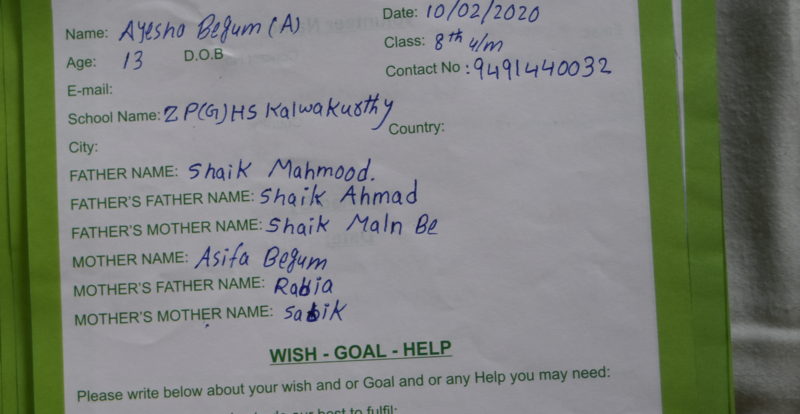 Name: Ayesha Begum (A) Date: 10/02/2020
Age: 13 D.O.B Class: 8th u/m
E-mail: Contact No : 9491440032
School Name: Z P(G) HS Kalwakurthy
City: Country:
FATHER NAME: Shaik Mahmood.
FATHER'S FATHER NAME: Shaik Ahmad
FATHER'S MOTHER NAME: Shaik Maln Be
MOTHER NAME: Asifa Begum
MOTHER'S FATHER NAME: Rabia
MOTHER'S MOTHER NAME: Sabik
WISH - GOAL - HELP
Please write below about your wish and or Goal and or any Help you may need:
best to fulfil: